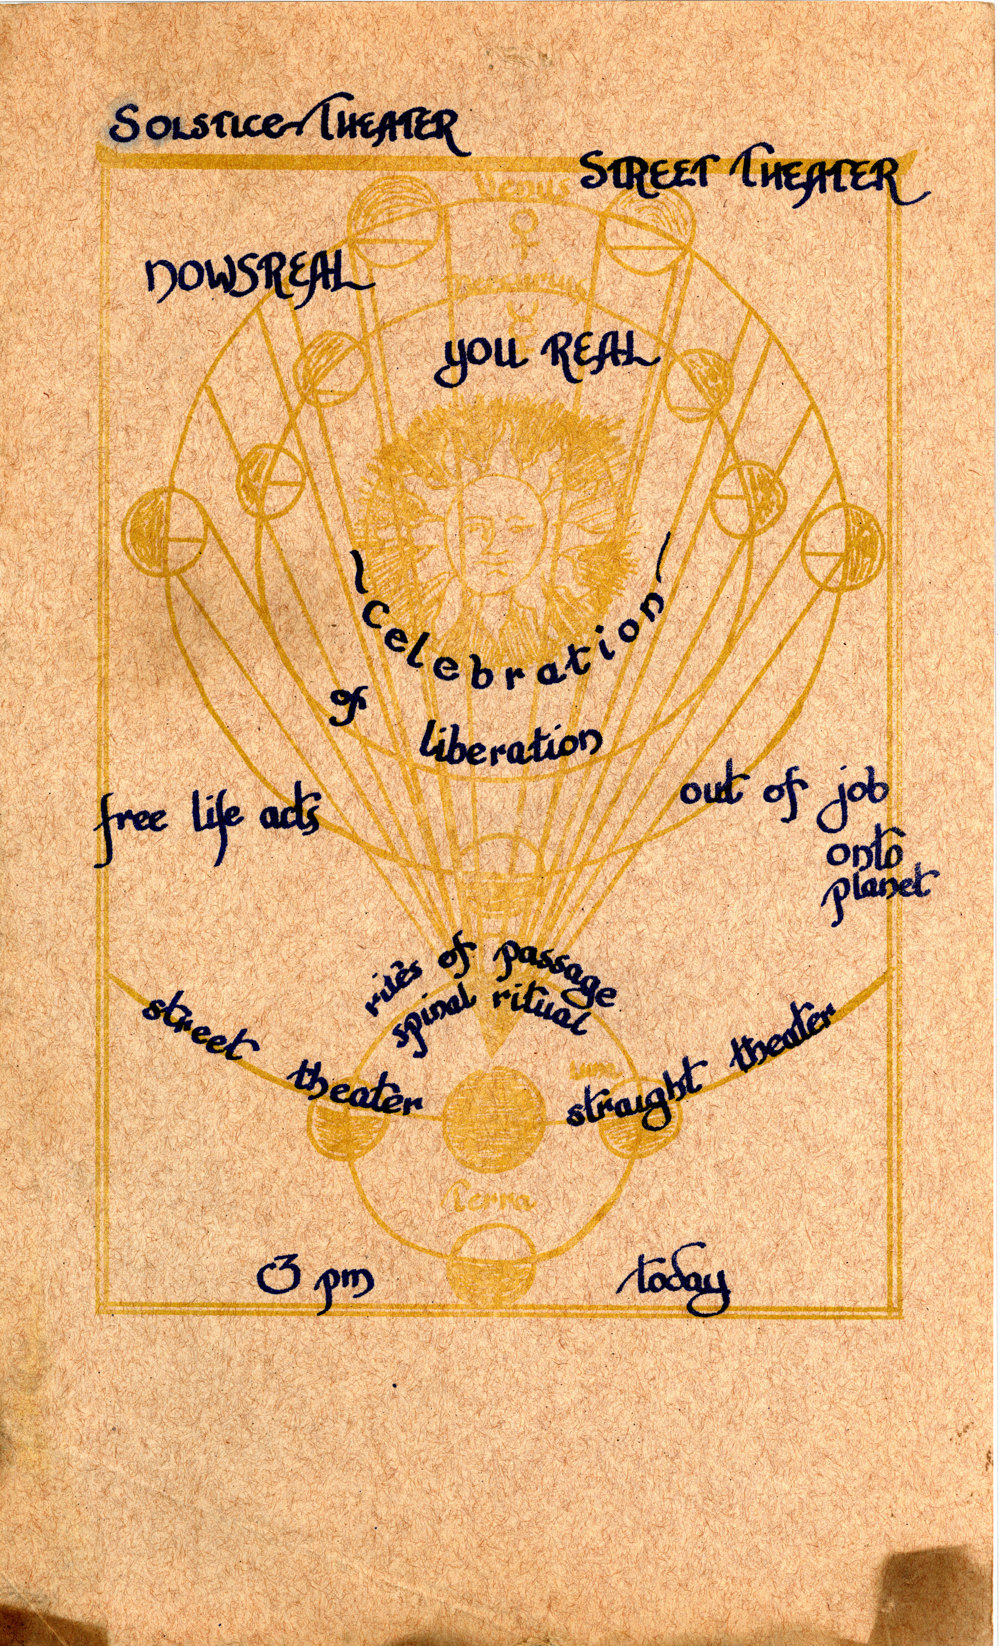 SOLSTICE THEATER
STREET THEATER
Venus
NOWSREAL
Mercurius
you REAL
celebration
of
liberation
free life acts
out of job
onto
planet
rites of passage
spinal ritual
street theater
straight theater
Terra
3 pm today